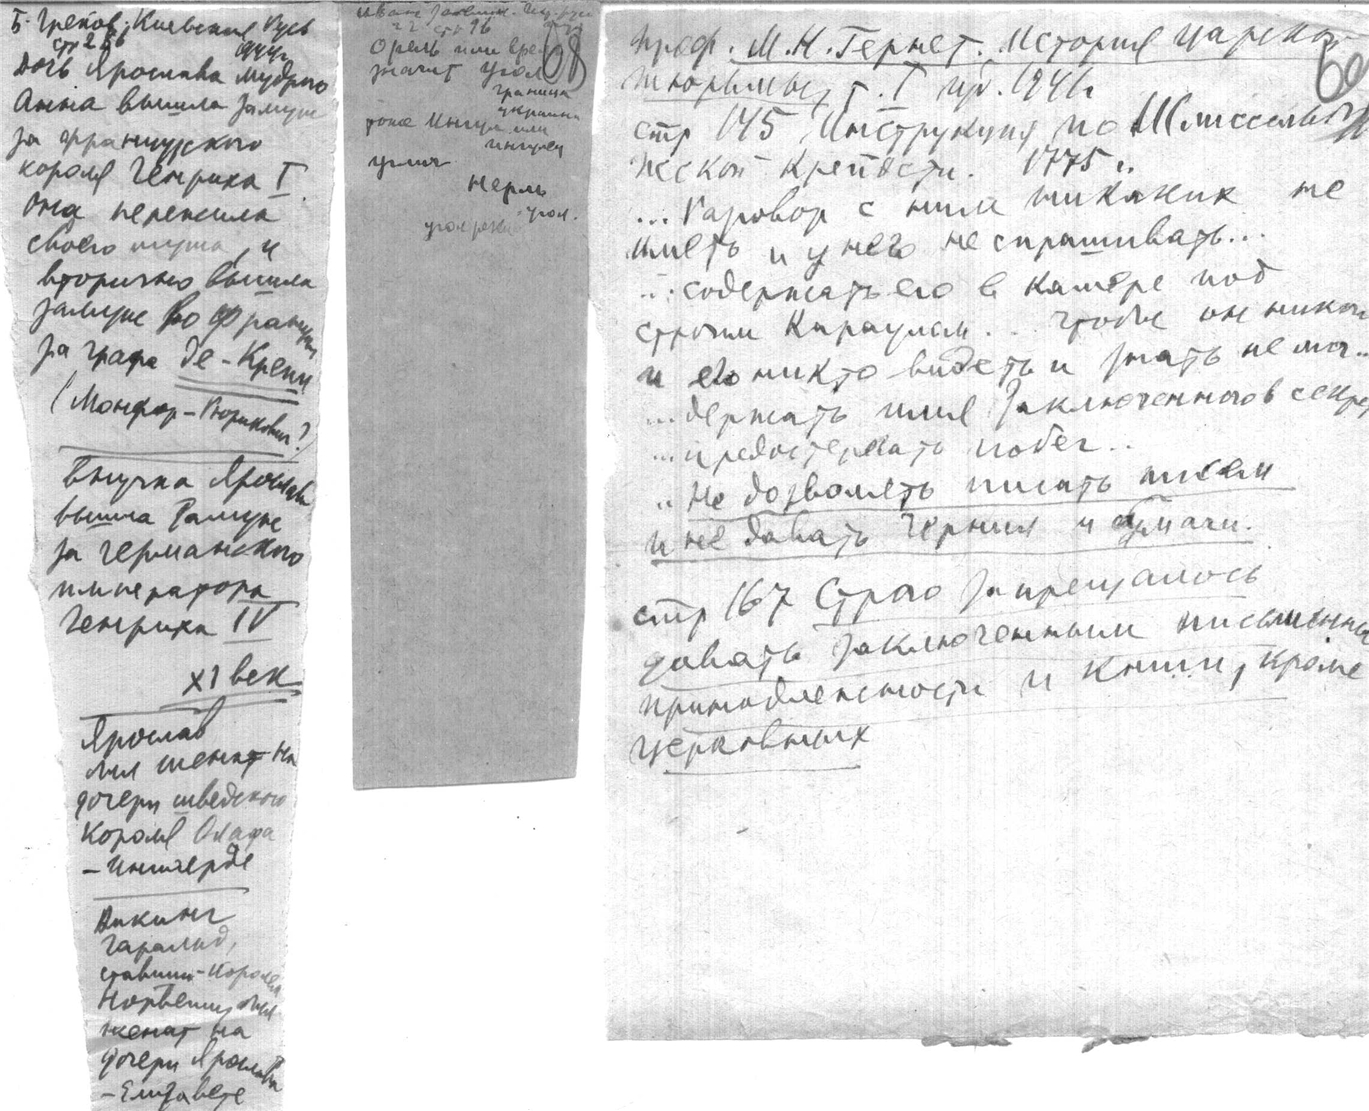 Б. Греков, Киевская Русь
стр 286
Дочь Ярослава Мудрого
Анна вышла замуж
за французского
короля Генриха I
Она пережила
своего мужа, и
вторично вышла
замуж во Франции
за графа де-Крепи
(Монфор-Рюрикович?)
Внучка Ярослава
вышла замуж
за германского
императора
Генриха IV
XI век
Ярослав
был женат на
дочери шведского
короля Олафа
- Ингигерде
Викинг
Гаральд,
ставший королем
Норвегии, был
женат на
дочери Ярослава
- Елизавете
стр 16
68
Орель или
значит угол
граница
украина
или
ингулец
нерль
угол
проф. М.Н.Гернет. История царской
тюрьмы, т. I изд. 1941г
69
стр 145 Инструкция по Шлиссельбур
жской крепости. 1775 г.
... Разговор с ним никаких не
иметь и у него не спрашивать...
... содержать его в камере под
строгим караулом... чтобы он никого
и его никто видеть и знать не мог..
... держать имя заключенного в секре
... предостерегать побег..
.. не дозволять писать писем
и не давать чернил и бумаги.
стр 167 Строго запрещалось
давать заключенным письменные
принадлежности и книги, кроме
церковных